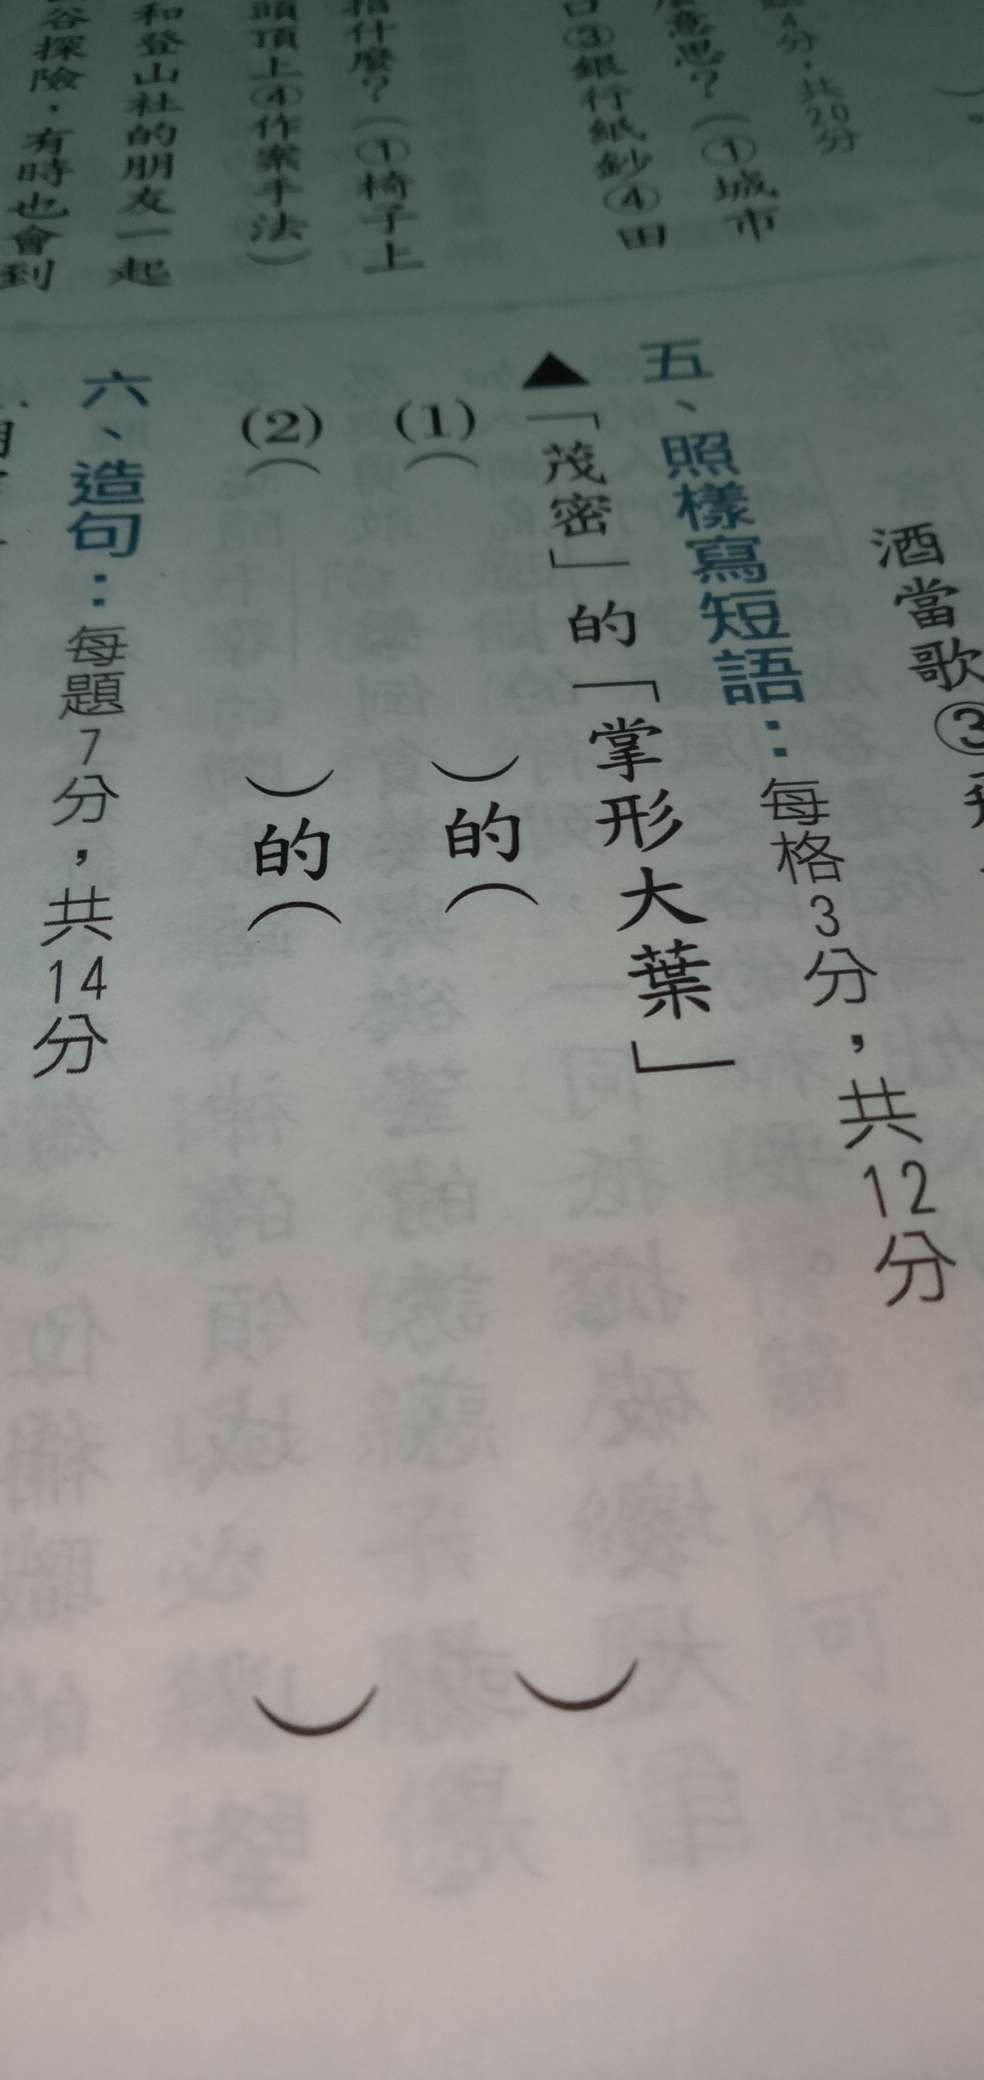 4分，共20分
意思？（①城市
③銀行紙鈔④田
指什麼？（①椅子上
頭頂上④作案手法）
和登山社的朋友一起
谷探險，有時也會到
酒當歌③
五、照樣寫短語：每格3分，共12分
▲「茂密」的「掌形大葉」
(1)（　　）的（　　）
(2)（　　）的（　　）
六、造句：每題7分，共14分